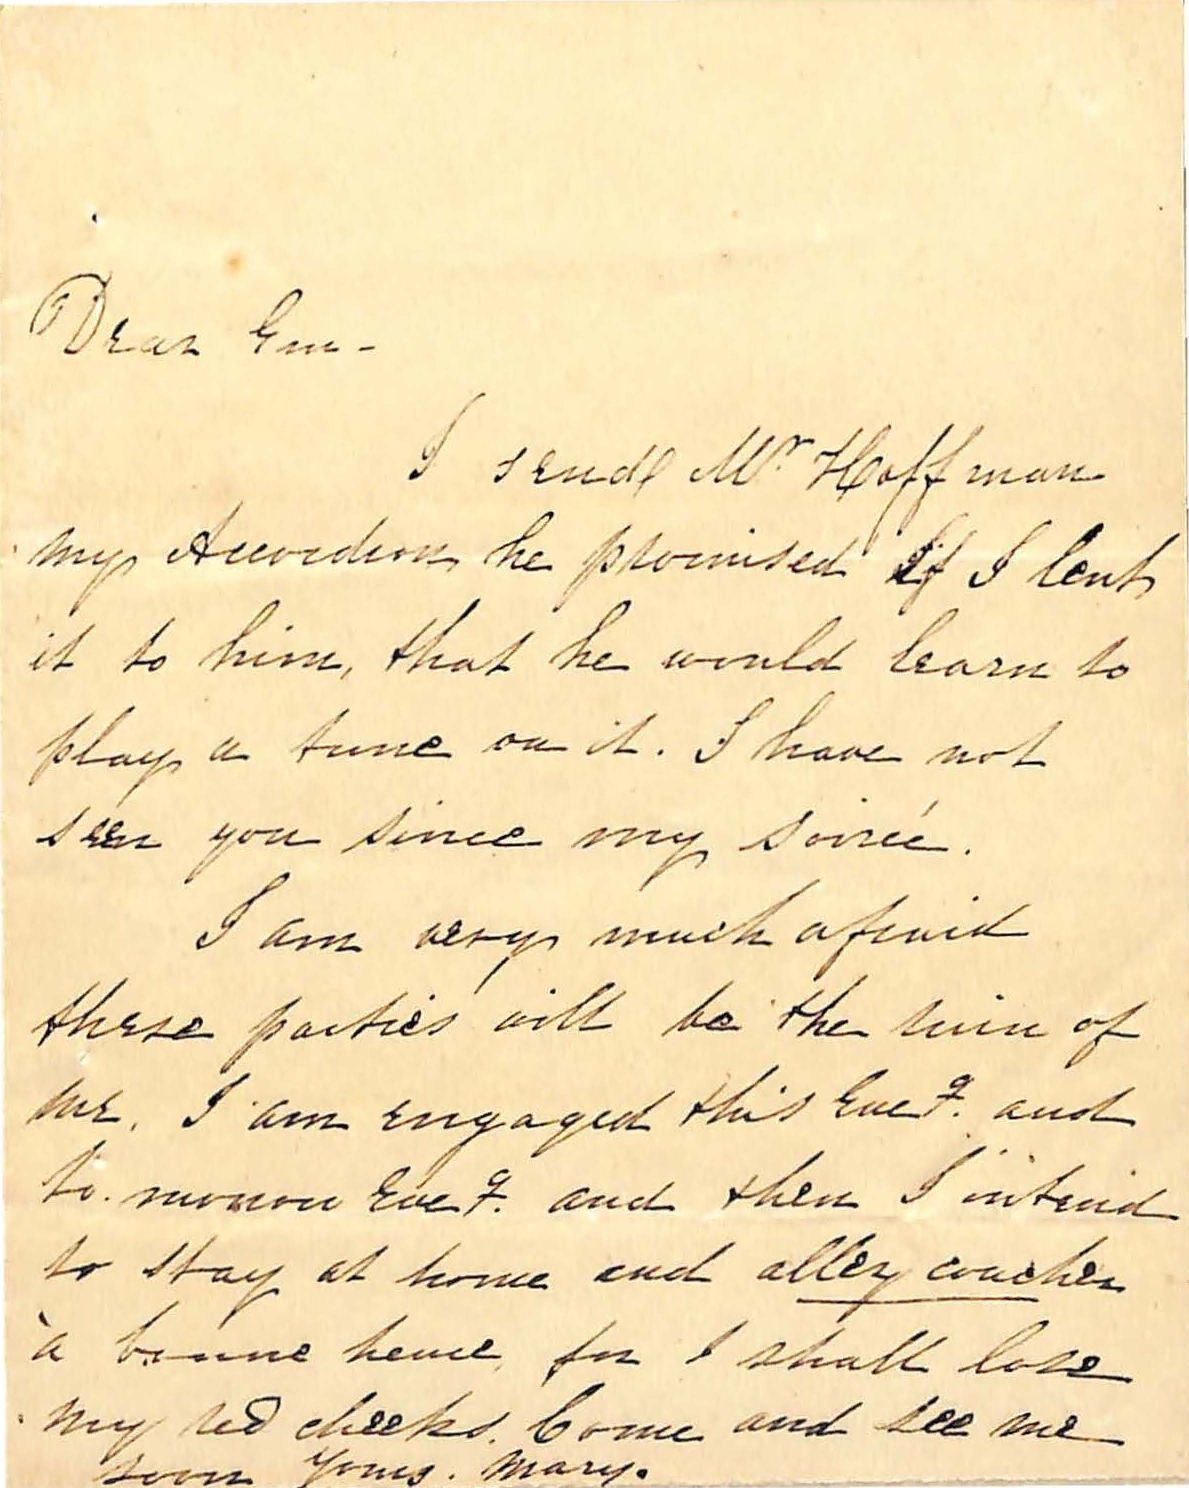 Dear Em -
I send Mr. Hoffman
my Accordion, he promised if I lent
it to him, that he would learn to
play a tune on it. I have not
seen you since my soireé.
I am very much afraid
these parties will be the ruin of
me. I am engaged this Eveg. and
to.morrow Eveg. and then I intend
to stay at home and alley coucher
à bonne heure, for I shall lose
my red cheeks. Come and see me
soon Yours. Mary.